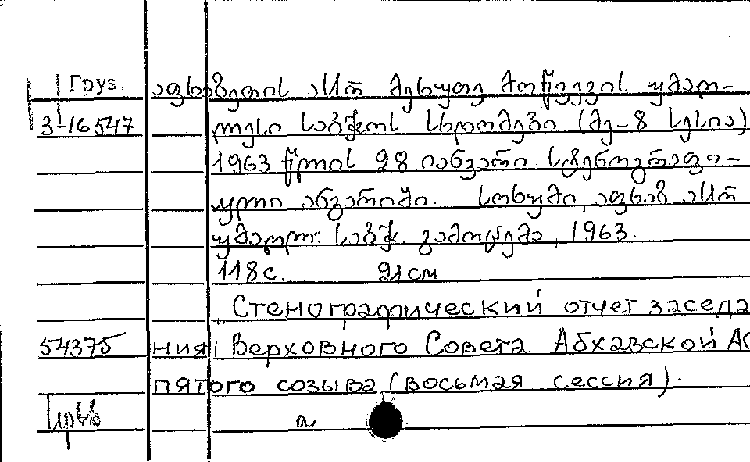 Груз. აფხაზეთის ასსრ მეხუთე მოწვევის უმაღ-
3-16547 ლესი საბჭოს სხდომები (მე-8 სესია)
1963 წლის 28 იანვარი. სტენოგრაფი-
ული ანგარიში. სოხუმი, აფხაზ. ასსრ
უმაღლ. საბჭ. გამოცემა, 1963.
118 с. 21 см
Стенографический отчет заседа
54375 ния Верховного Совета Абхазской АС
пятого созыва (восьмая сессия).